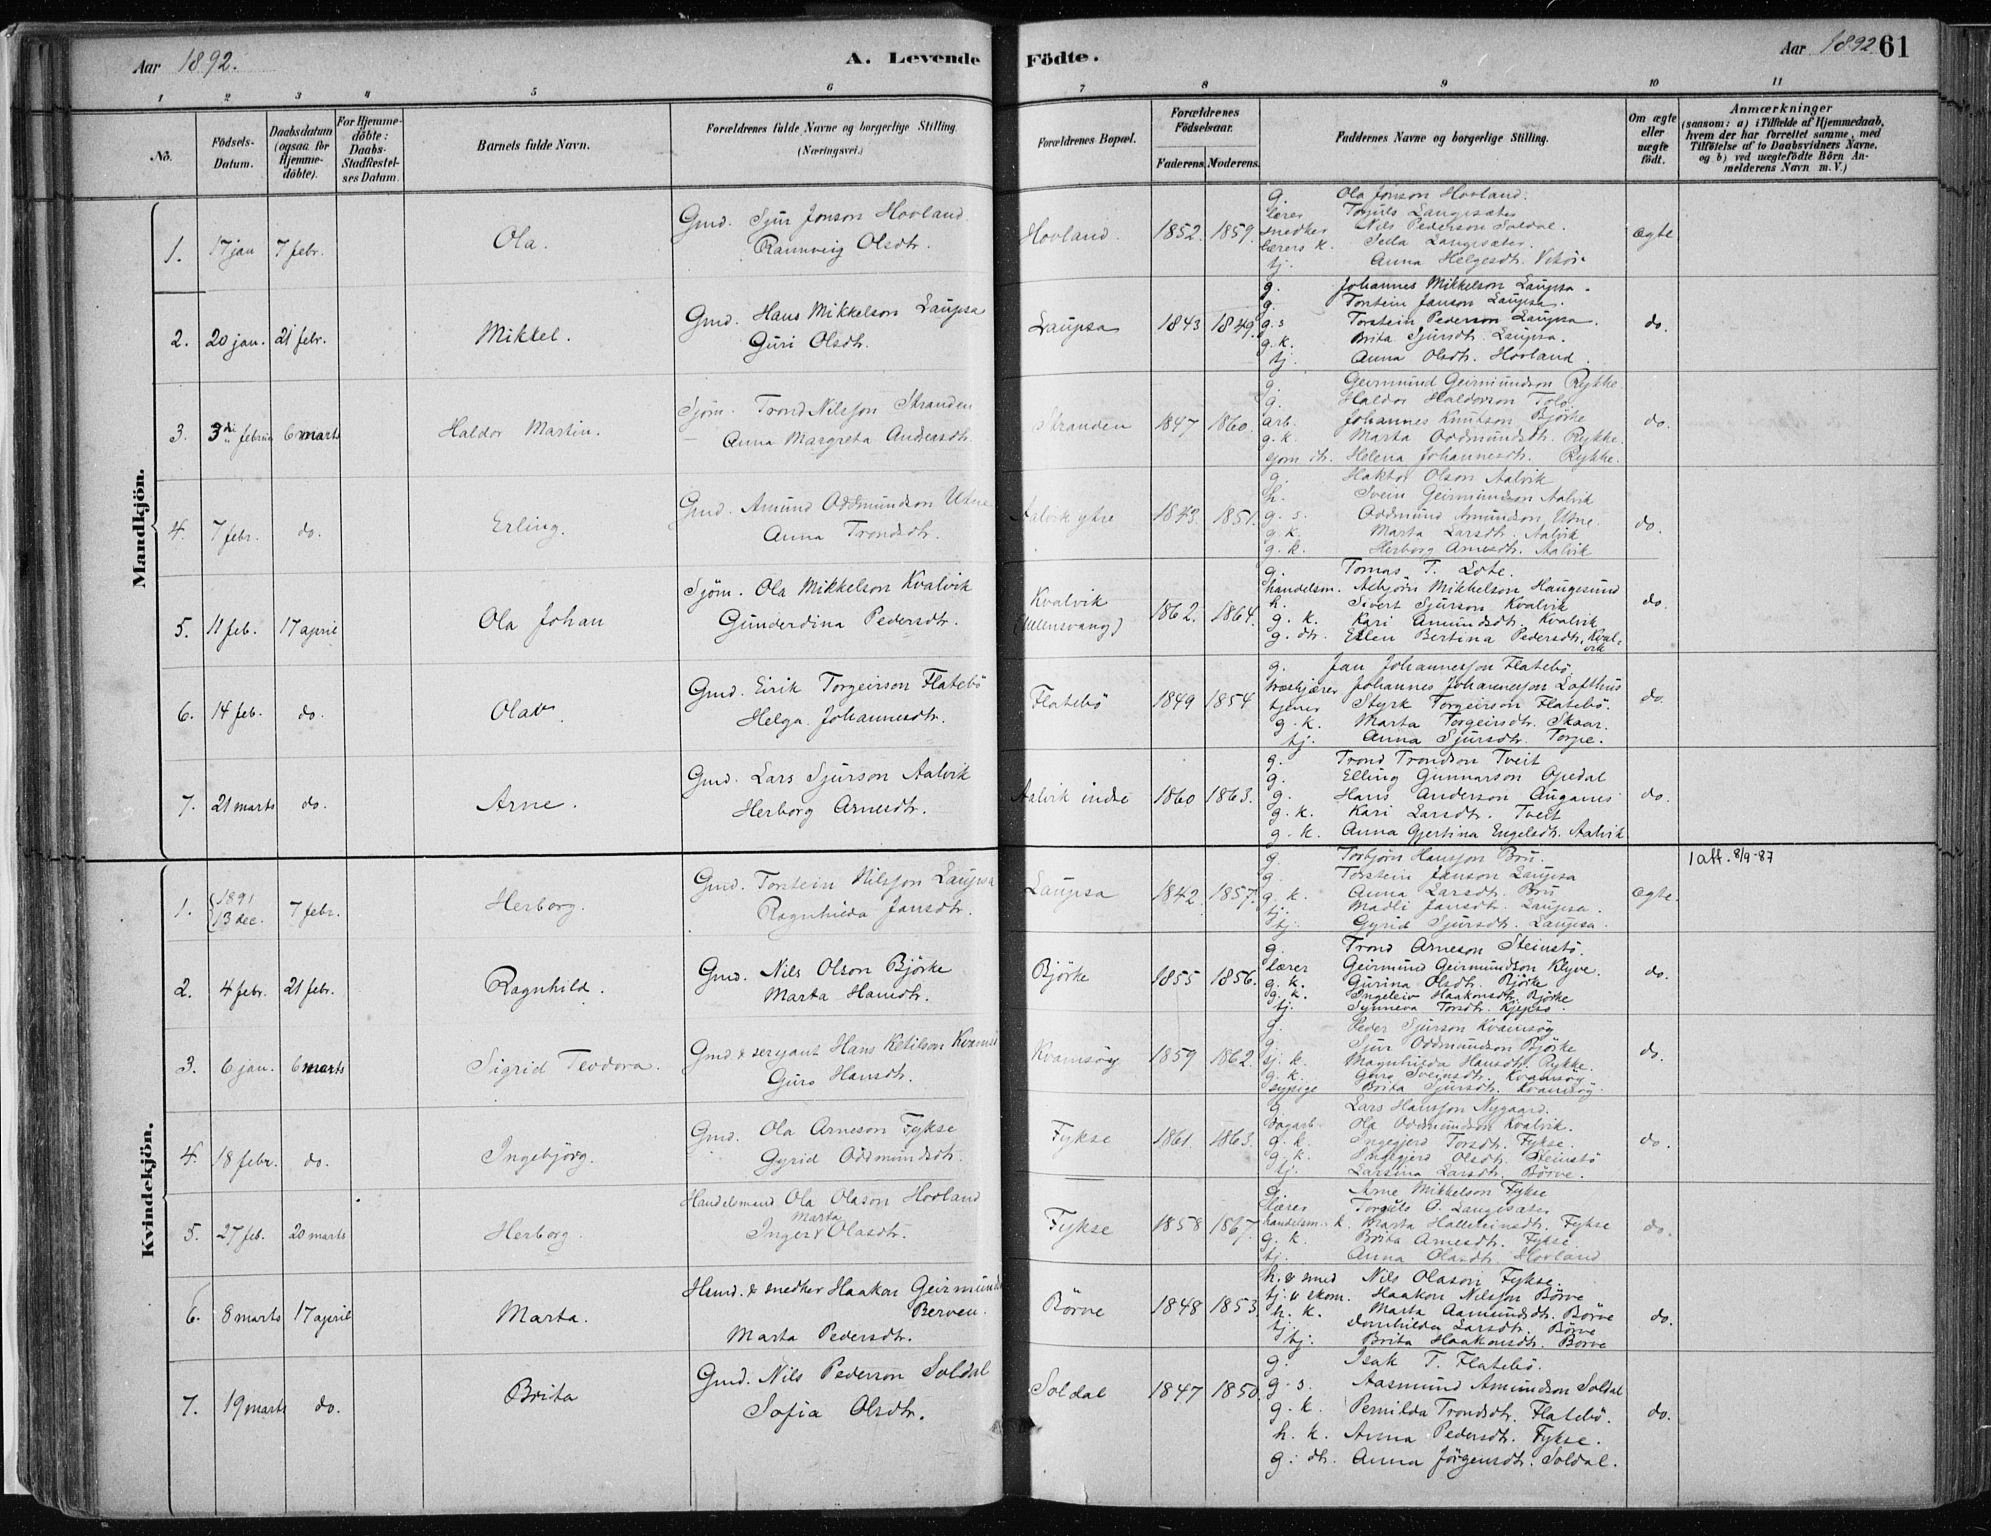 Aar 1892.
A. Levende Födte.
Aar 1892 61
1 2 3 4 5 6 7 8 9 10 11
No.
Födsels-Datum.
Daabsdatum (ogsaa for Hjemme-döbte).
For Hjemme-döbte: Daabs-Stadfæstel-ses Datum.
Barnets fulde Navn.
Forældrenes fulde Navne og borgerlige Stilling (Næringsvei.)
Forældrenes Bopæl.
Forældrenes Födselsaar.
Faderens. Moderens.
Faddernes Navne og borgerlige Stilling.
Om ægte eller uægte födt.
Anmærkninger
(saasom: a) i Tilfælde af Hjemmedaab, hvem der har forrettet samme, med Tilföielse af to Daabsvidners Navne, og b) ved uægtefödte Börn An-melderens Navn m. V.)
Mandkjön.
1. 17 jan 7 febr. Ola.
Gmd. Sjur Jonson Hovland
Rannveig Olsdtr.
Hovland. 1852. 1859. ægte
g. Ola Jonson Hovland.
lærer Torgils Langesæter
snedker Nils Pederson Soldal.
lærers k. Seila Langesæter.
tj. Anna Helgesdtr. Vikör
2. 20 jan. 21 febr. Mikkel.
Gmd. Hans Mikkelson Laupsa
Guri Olsdtr.
Laupsa 1843 1849. do.
g. Johannes Mikkelson Laupsa.
g. Torstein Janson Laupsa.
g. s Torstein Pederson Laupsa.
g. k. Brita Sjursdtr. Laupsa.
tj. Anna Olsdtr. Hovland.
3. 3die februar 6 marts Haldor Martin.
Sjöm. Trond Nilsson Stranden
Anna Margreta Andersdtr.
Stranden 1847 1860. do.
g. Geirmund Geirmundson Rykke.
g. Haldor Haldorson Tolo
arb. Johannes Knutson Björke
g. k. Marta Oddmundsdtr. Rykke.
sjöm. dtr. Helena Johannesdtr. Rykke.
4. 7 febr. do. Erling.
Gmd. Amund Oddmundson Utne
Anna Trondsdtr.
Aalvik ytre 1843. 1851. do.
g. Haktor Olson Aalvik
h. Svein Geirmundson Aalvik
g. s. Oddmund Amundson Utne.
g. k. Marta Larsdtr. Aalvik
g. k. Herborg Arnesdtr. Aalvik
5. 11 feb. 17 april Ola Johan
Sjöm. Ola Mikkelson Kvalvik
Gunderdina Pedersdtr.
Kvalvik (Ullensvang) 1862. 1864. do.
g. Tomas T. Lote.
handelsm. Asbjörn Mikkelson Haugesund
h. Sivert Sjurson Kvalvik
g. k. Kari Amundsdtr. Kvalvik
g. dtr. Ellen Bertina Pedersdtr. Kvalvik
6. 14 feb. do. Olav.
Gmd. Eirik Torgeirson Flatebö
Helga Johannesdtr.
Flatebö 1849 1854 do.
g. Jan Johannesson Flatebö
træskjærer Johannes Johannesson Lofthus
tjener Styrk Torgeirson Flatebö.
g. k. Marta Torgeirsdtr. Skaar.
tj. Anna Sjursdtr. Torpe.
7. 21 marts do. Arne.
Gmd. Lars Sjurson Aalvik
Herborg Arnesdtr.
Aalvik indre 1860 1863. do.
g. Trond Trondson Tveit
g. Elling Gunnarson Opedal
g. Hans Anderson Auganes
g. k. Kari Larsdtr. Tveit
g. k. Anna Gjertina Engelsdtr. Aalvik
Kvindekjön.
1. 1891 13 dec. 7 febr. Herborg.
Gmd. Torstein Nilsson Laupsa
Ragnhilda Jansdtr.
Laupsa 1842 1857. ægte
g. Torbjörn Hansson Bru.
g. Torstein Janson Laupsa
g. k. Anna Larsdtr. Bru
tj. Madli Jansdtr. Laupsa.
tj. Gyrid Sjursdtr. Laupsa.
1 att. 8/9-87
2. 4 febr. 21 febr. Ragnhild.
Gmd. Nils Olson Björke
Marta Hansdtr.
Björke 1855 1856. do.
g. Trond Arneson Steinstö.
lærer Geirmund Geirmundson Klyve.
g. k. Gurina Olsdtr. Björke
g. k. Ingeleiv Haakonsdtr. Björke
tj. Synneva Torsdtr. Kjepsö.
3. 6 jan. 6 marts Sigrid Teodora.
Gmd & serjant Hans Ketilson Kvamsö
Guro Hansdtr.
Kvamsöy 1859 1862. do.
g. Peder Sjurson Kvamsöy
g. Sjur Oddmundson Björke
sj. k. Magnhilda Hansdtr. Rykke.
g. k. Guro Sveinsdtr. Kvamsöy
sypige Brita Sjursdtr. Kvamsöy.
4. 18 febr. do. Ingebjörg.
Gmd. Ola Arneson Fykse
Gyrid Oddmundsdtr.
Fykse 1861 1863. do.
g. Lars Hansson Nygaard.
dagarb. Ola Oddmundson Kvalvik.
g. k. Ingegjerd Torsdtr. Fykse.
g. k. Ingegjerd Olsdtr. Steinstö
tj. Larsina Larsdtr. Börve.
5. 27 feb. 20 marts Herborg.
Handelsmand Ola Olason Hovland
Inger Marta Olasdtr.
Fykse 1858 1867. do.
g. Arne Mikkelson Fykse
lærer Torgils O. Langesæter
handelsm. k. Marta Halleleinsdtr. Fykse
g. k. Brita Arnesdtr. Fykse
tj. Anna Olasdtr. Hovland
6. 8 marts 17 april Marta.
Hmd. & snedker Haakon Geirmunds
Berven.
Marta Pedersdtr.
Börve 1848 1853. do.
h. & smed Nils Olason Fykse.
tj. & skom. Haakon Nilsson Börve
h. k. Marta Aamundsdtr. Börve
tj. Jornhilda Larsdtr. Börve
tj. Brita Haakonsdtr. Börve
7. 19 marts do. Brita
Gmd. Nils Pederson Soldal
Sofia Olsdtr.
Soldal 1847 1850. do.
g. Isak T. Flatebö.
g. s. Aasmund Amundson Soldal
g. k. Pernilda Trondsdtr. Flatebö.
h. k. Anna Pedersdtr. Fykse.
g. dtr. Anna Jörgensdtr. Soldal.